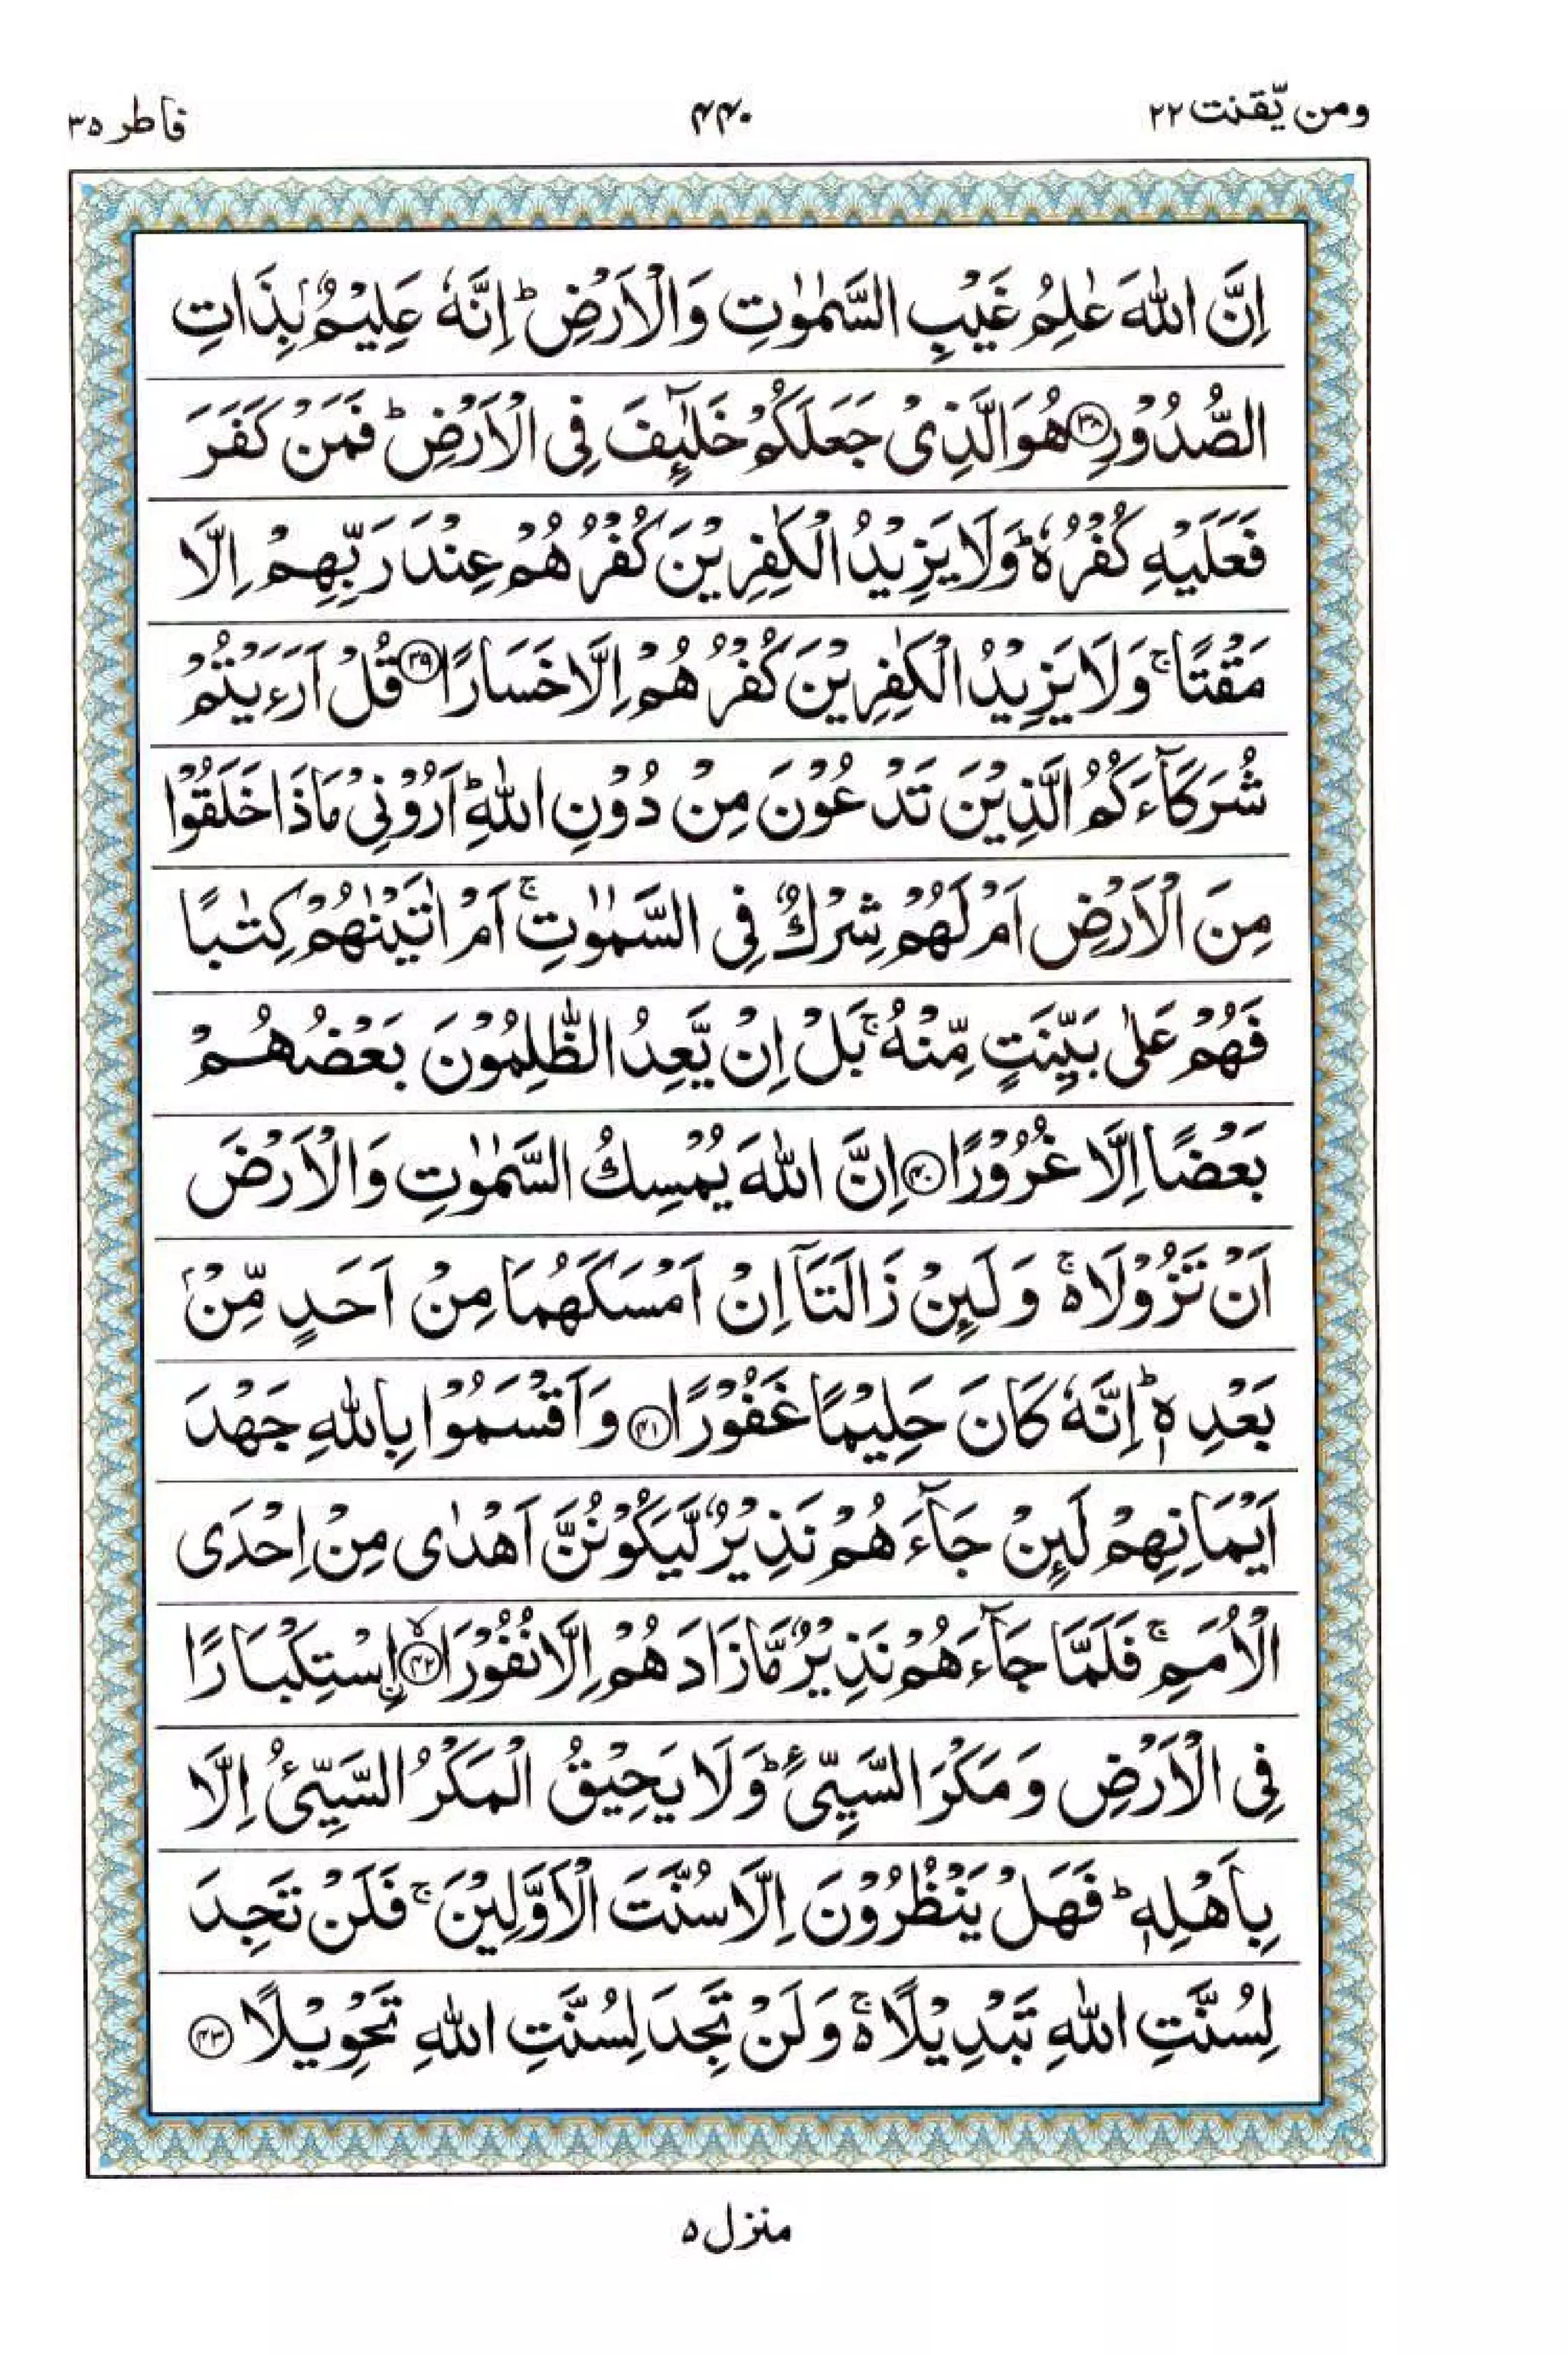 ومن یّقنت ۲۲
۴۴۰
فاطر ۳۵
اِنَّ اللّٰهَ عٰلِمُ غَیْبِ السَّمٰوٰتِ وَالْاَرْضِ ؕ اِنَّهٗ عَلِیْمٌۢ بِذَاتِ
الصُّدُوْرِ ﴿۳۸﴾ هُوَ الَّذِیْ جَعَلَكُمْ خَلٰٓئِفَ فِی الْاَرْضِ ؕ فَمَنْ كَفَرَ
فَعَلَیْهِ كُفْرُهٗ ؕ وَلَا یَزِیْدُ الْكٰفِرِیْنَ كُفْرُهُمْ عِنْدَ رَبِّهِمْ اِلَّا
مَقْتًا ۚ وَلَا یَزِیْدُ الْكٰفِرِیْنَ كُفْرُهُمْ اِلَّا خَسَارًا ﴿۳۹﴾ قُلْ اَرَءَیْتُمْ
شُرَكَآءَكُمُ الَّذِیْنَ تَدْعُوْنَ مِنْ دُوْنِ اللّٰهِ ؕ اَرُوْنِیْ مَاذَا خَلَقُوْا
مِنَ الْاَرْضِ اَمْ لَهُمْ شِرْكٌ فِی السَّمٰوٰتِ ۚ اَمْ اٰتَیْنٰهُمْ كِتٰبًا
فَهُمْ عَلٰی بَیِّنَتٍ مِّنْهُ ۚ بَلْ اِنْ یَّعِدُ الظّٰلِمُوْنَ بَعْضُهُمْ
بَعْضًا اِلَّا غُرُوْرًا ﴿۴۰﴾ اِنَّ اللّٰهَ یُمْسِكُ السَّمٰوٰتِ وَالْاَرْضَ
اَنْ تَزُوْلَا ۬ۚ وَلَئِنْ زَالَتَاۤ اِنْ اَمْسَكَهُمَا مِنْ اَحَدٍ مِّنْۢ
بَعْدِهٖ ؕ اِنَّهٗ كَانَ حَلِیْمًا غَفُوْرًا ﴿۴۱﴾ وَاَقْسَمُوْا بِاللّٰهِ جَهْدَ
اَیْمَانِهِمْ لَئِنْ جَآءَهُمْ نَذِیْرٌ لَّیَكُوْنُنَّ اَهْدٰی مِنْ اِحْدَی
الْاُمَمِ ۚ فَلَمَّا جَآءَهُمْ نَذِیْرٌ مَّا زَادَهُمْ اِلَّا نُفُوْرَا ﴿۴۲﴾ۙ اِ۟سْتِكْبَارًا
فِی الْاَرْضِ وَمَكْرَ السَّیِّئِ ؕ وَلَا یَحِیْقُ الْمَكْرُ السَّیِّئُ اِلَّا
بِاَهْلِهٖ ؕ فَهَلْ یَنْظُرُوْنَ اِلَّا سُنَّتَ الْاَوَّلِیْنَ ۚ فَلَنْ تَجِدَ
لِسُنَّتِ اللّٰهِ تَبْدِیْلًا ۬ۚ وَلَنْ تَجِدَ لِسُنَّتِ اللّٰهِ تَحْوِیْلًا ﴿۴۳﴾
منزل ۵